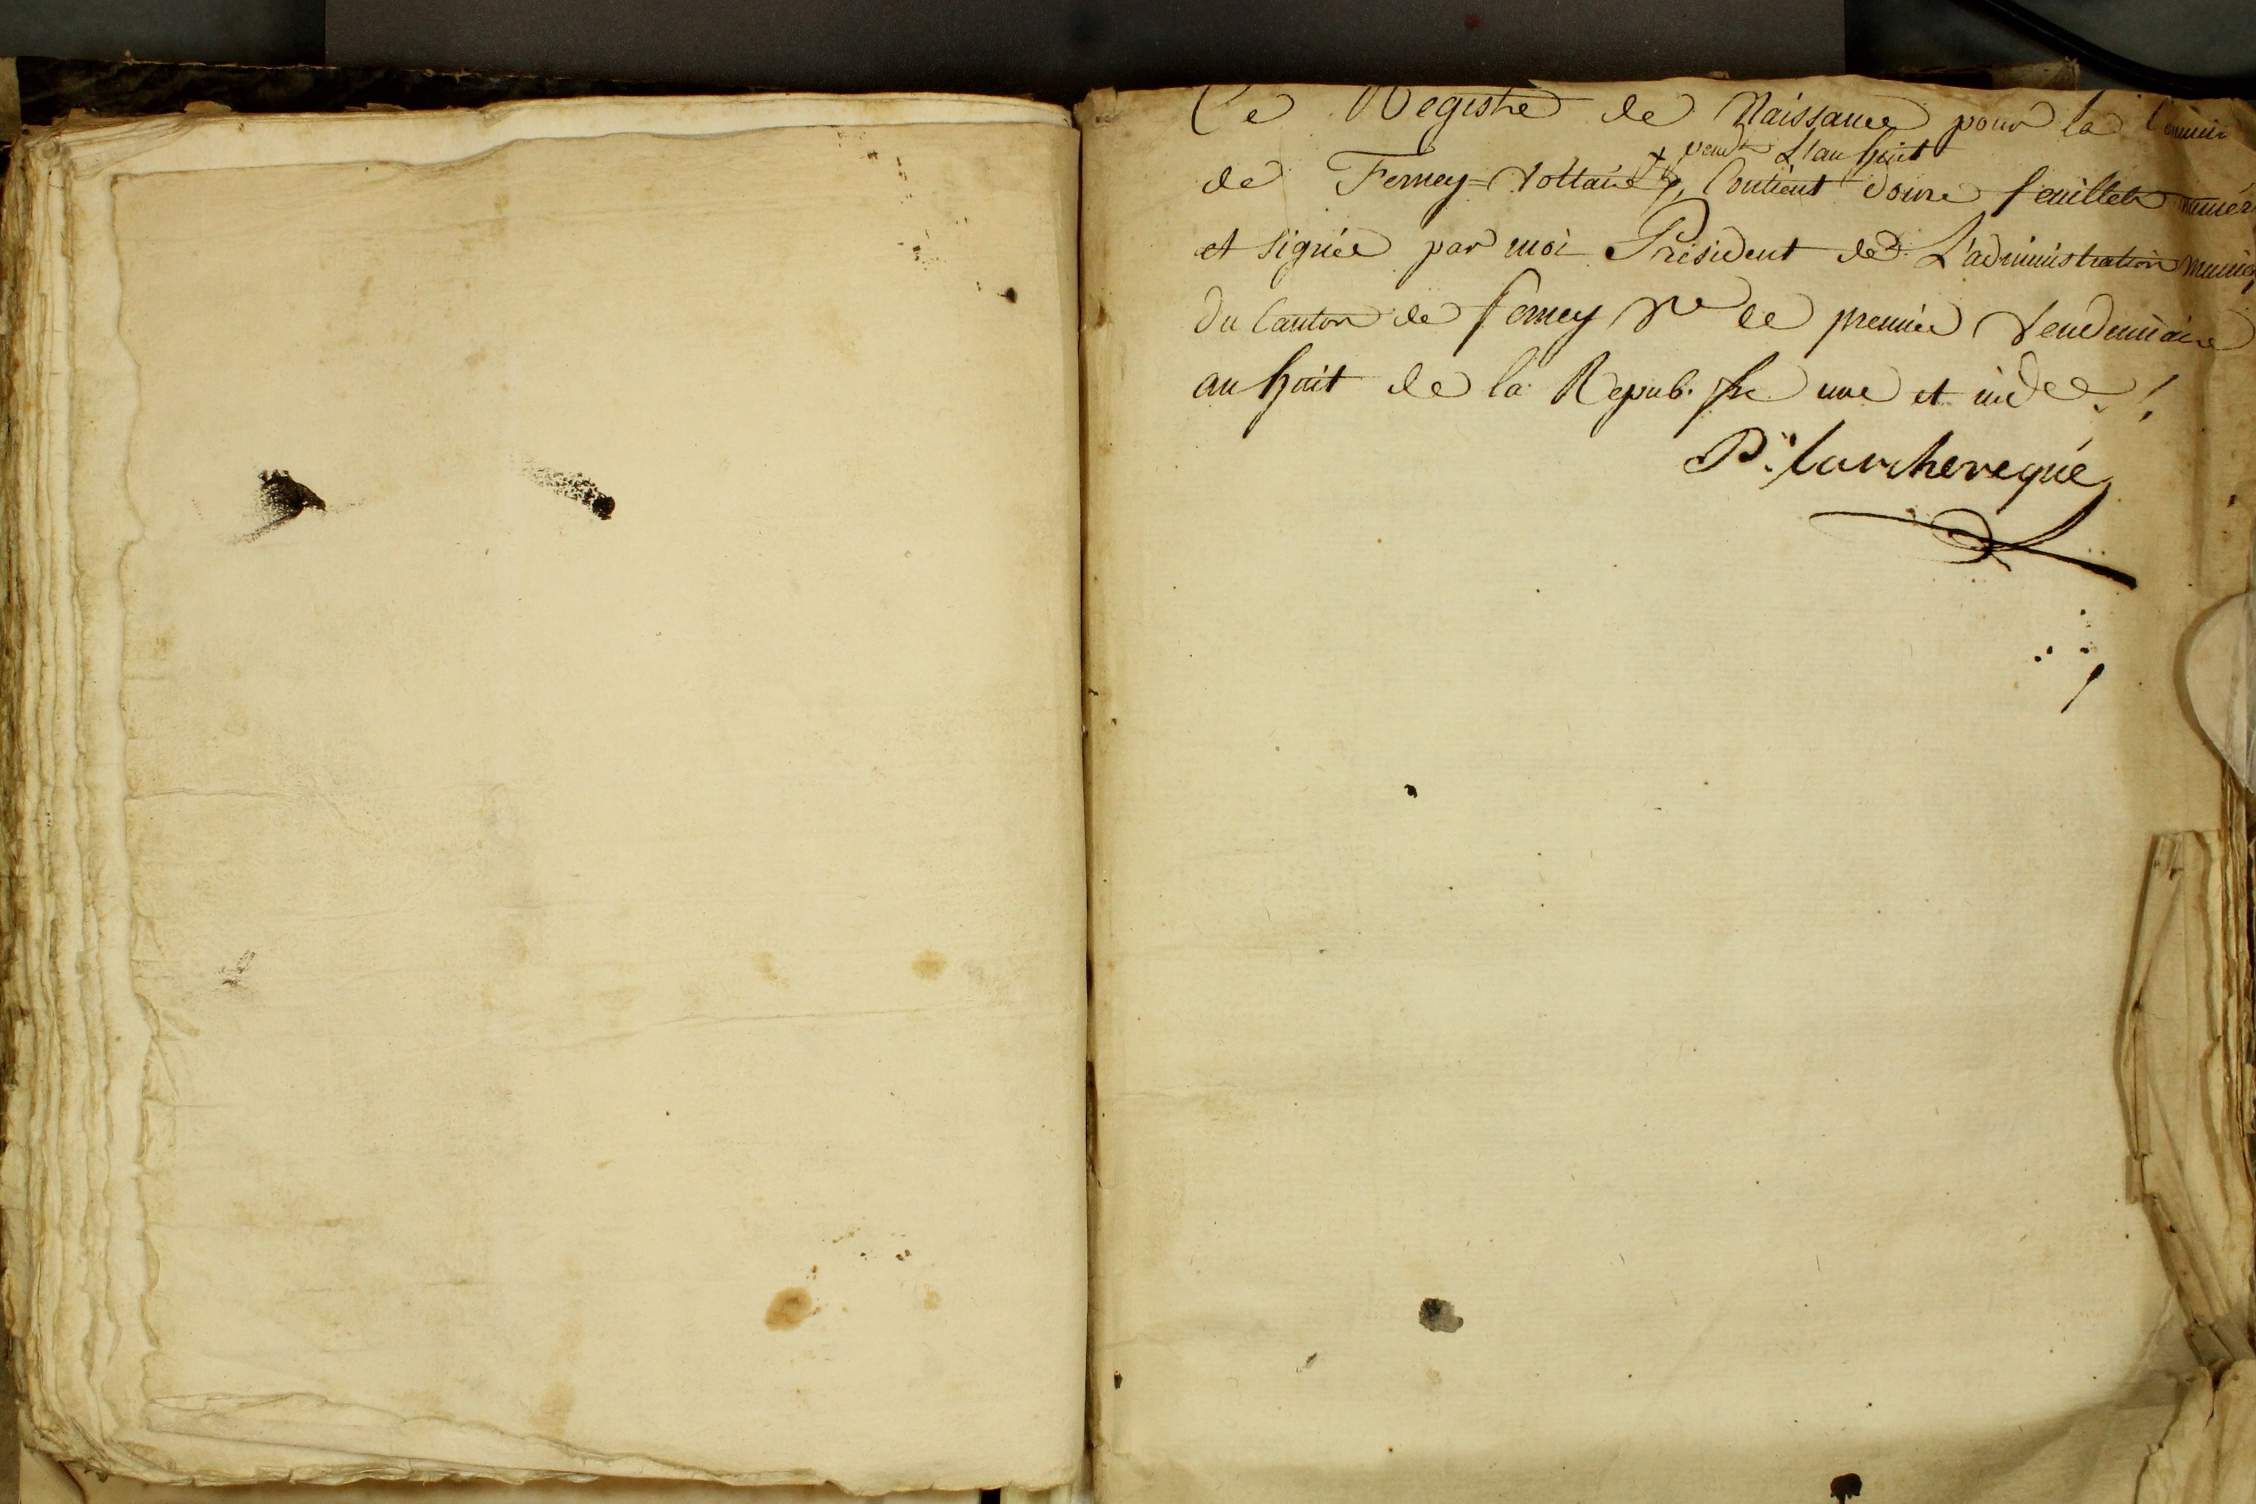 Ce Registre de Naissance pour la Commu
pendt L'an huit
de Ferney=Voltaire, Contient douze feuillets numéro
et signée par moi Président de L'administration municip
du Canton de ferney Vre le premier Vendemiaire
an huit de la Repub. fse une et indee ./.
P. Larchevequé